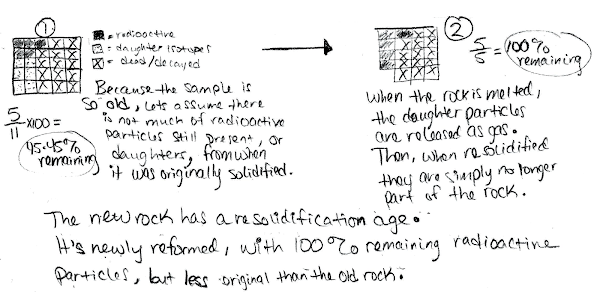 ①
radioactive
daughter isotopes
dead/decayed
Because the sample is
so old, lets assume there
is not much of radioactive
particles still present, or
daughters, from when
it was originally solidified.
5/11 x100 =
45.45%
remaining
②
5/5 = 100%
remaining
when the rock is melted,
the daughter particles
are released as gas.
Then, when resolidified
they are simply no longer
part of the rock.
The new rock has a resolidification age.
It's newly reformed, with 100% remaining radioactive
particles, but less original than the old rock.